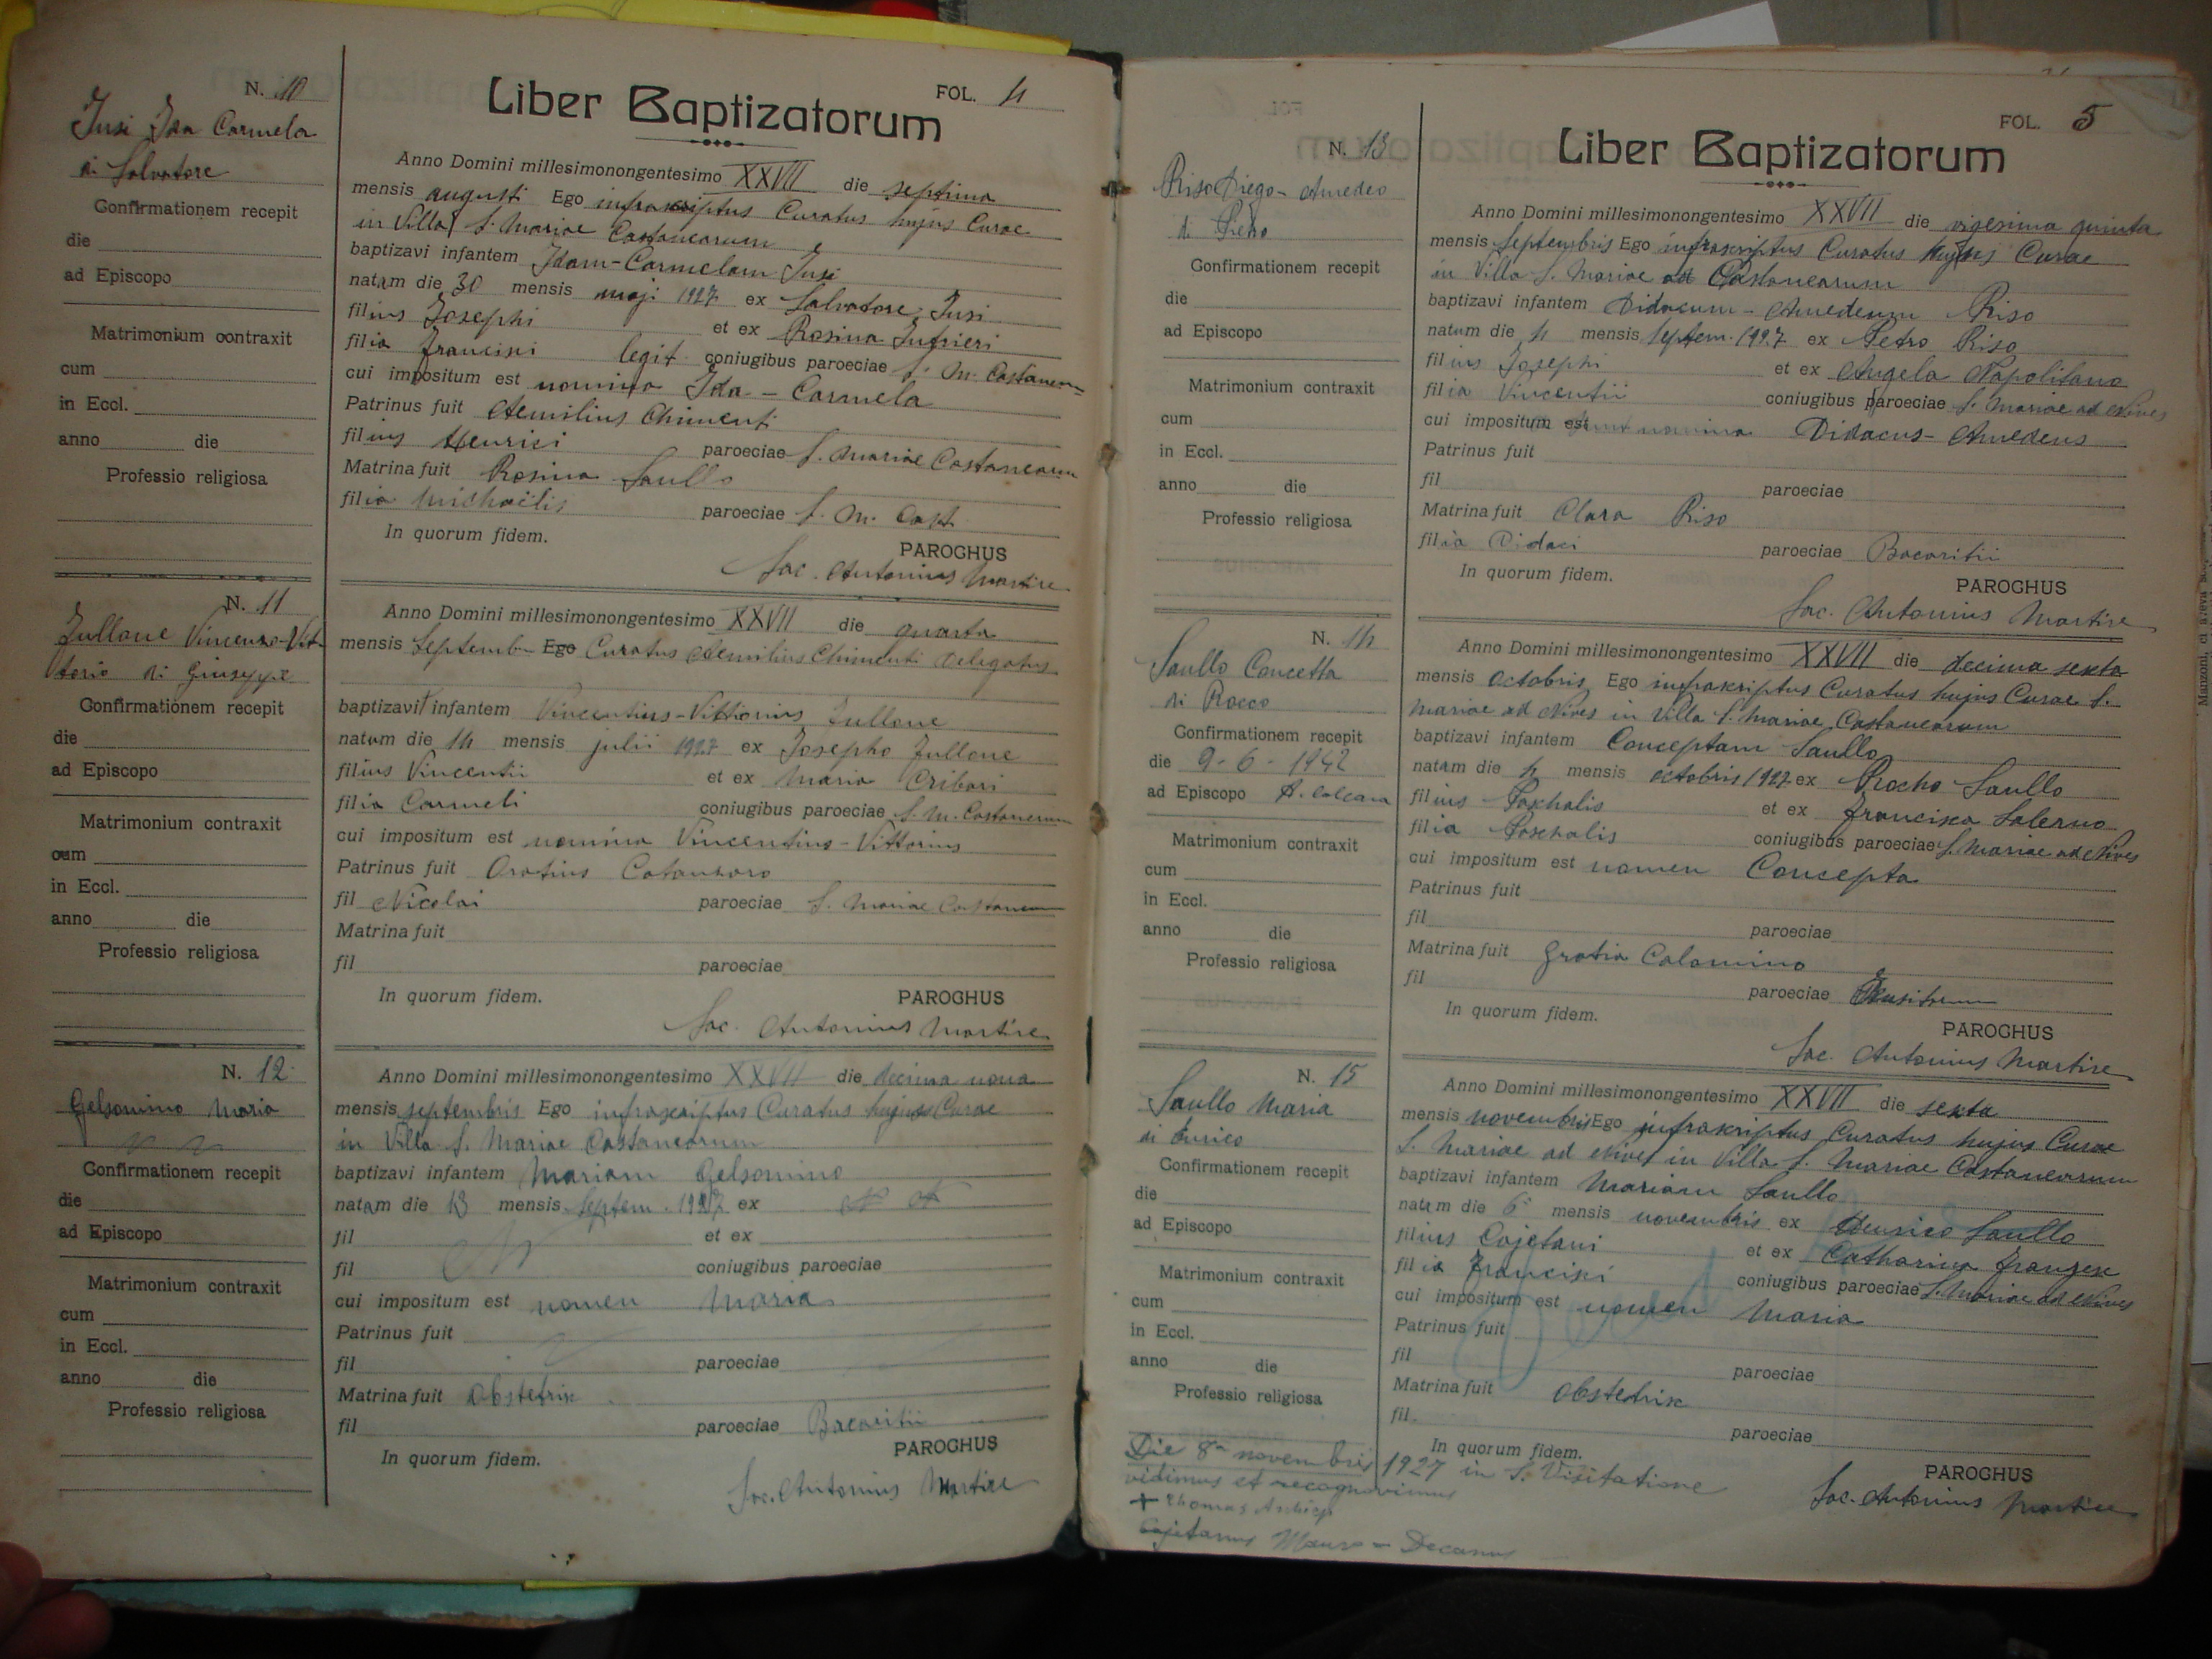 N. 10
Jusi Ida Carmela
di Salvatore
Confirmationem recepit
die
ad Episcopo
Matrimonium contraxit
cum
in Eccl.
anno die
Professio religiosa
FOL. 4
Liber Baptizatorum
Anno Domini millesimonongentesimo XXVII die septima
mensis augusti Ego infrascriptus Curatus hujus Curae
in Villa S. Mariae Castanearum
baptizavi infantem Idam-Carmelam Jusi
natam die 30 mensis maji 1927 ex Salvatore Jusi
filius Josephi et ex Rosina Jufrieri
filia Francisci legit coniugibus paroeciae S. M. Castanear
cui impositum est nomina Ida - Carmela
Patrinus fuit Aemilius Chimenti
filius Henrici paroeciae S. Mariae Castanearum
Matrina fuit Rosina Saullo
filia Michaëlis paroeciae S. M. Cast.
In quorum fidem.
PAROCHUS
Sac. Antonius Martire
N. 11
Fullone Vincenzo-Vit
torio di Giuseppe
Confirmationem recepit
die
ad Episcopo
Matrimonium contraxit
cum
in Eccl.
anno die
Professio religiosa
Anno Domini millesimonongentesimo XXVII die quarta
mensis Septembr Ego Curatus Aemilius Chimenti Delegatus
baptizavit infantem Vincentius-Vittorius Fullone
natum die 14 mensis julii 1927 ex Josepho Fullone
filius Vincentii et ex Maria Cribari
filia Carmeli coniugibus paroeciae S. M. Castanearum
cui impositum est nomina Vincentius-Vittorius
Patrinus fuit Oratius Catanzaro
fil Nicolai paroeciae S. Mariae Castanear
Matrina fuit
fil paroeciae
In quorum fidem.
PAROCHUS
Sac. Antonius Martire
N. 12
Gelsomino Maria
Confirmationem recepit
die
ad Episcopo
Matrimonium contraxit
cum
in Eccl.
anno die
Professio religiosa
Anno Domini millesimonongentesimo XXVII die decima nona
mensis septembris Ego infrascriptus Curatus hujus Curae
in Villa S. Mariae Castanearum
baptizavi infantem Mariam Gelsomino
natam die 13 mensis Septem. 1927 ex N N
fil et ex
fil coniugibus paroeciae
cui impositum est nomen Maria
Patrinus fuit
fil paroeciae
Matrina fuit Obstetrix
fil paroeciae Bacaritii
In quorum fidem.
PAROCHUS
Sac. Antonius Martire
N. 13
Riso Diego - Amedeo
di Pietro
Confirmationem recepit
die
ad Episcopo
Matrimonium contraxit
cum
in Eccl.
anno die
Professio religiosa
FOL. 5
Liber Baptizatorum
Anno Domini millesimonongentesimo XXVII die vigesima quinta
mensis Septembris Ego infrascriptus Curatus hujus Curae
in Villa S. Mariae ad Castanearum
baptizavi infantem Didacum - Amedeum Riso
natum die 4 mensis Septem. 1927 ex Petro Riso
filius Josephi et ex Angela Napolitano
filia Vincentii coniugibus paroeciae S. Mariae ad Nives
cui impositum est sunt nomina Didacus - Amedeus
Patrinus fuit
fil paroeciae
Matrina fuit Clara Riso
filia Didaci paroeciae Bacaritii
In quorum fidem.
PAROCHUS
Sac. Antonius Martire
N. 14
Saullo Concetta
di Rocco
Confirmationem recepit
die 9-6-1942
ad Episcopo A. Calcara
Matrimonium contraxit
cum
in Eccl.
anno die
Professio religiosa
Anno Domini millesimonongentesimo XXVII die decima sexta
mensis octobris Ego infrascriptus Curatus hujus Curae S.
Mariae ad Nives in Villa S. Mariae Castanearum
baptizavi infantem Conceptam Saullo
natam die 4 mensis octobris 1927 ex Rocho Saullo
filius Paschalis et ex Francisca Salerno
filia Paschalis coniugibus paroeciae S. Mariae ad Nives
cui impositum est nomen Concepta
Patrinus fuit
fil paroeciae
Matrina fuit Gratia Calomino
fil paroeciae
In quorum fidem.
PAROCHUS
Sac. Antonius Martire
N. 15
Saullo Maria
di Enrico
Confirmationem recepit
die
ad Episcopo
Matrimonium contraxit
cum
in Eccl.
anno die
Professio religiosa
Anno Domini millesimonongentesimo XXVII die sexta
mensis novembris Ego infrascriptus Curatus hujus Curae
S. Mariae ad Nives in Villa S. Mariae Castanearum
baptizavi infantem Mariam Saullo
natam die 6 mensis novembris ex Henrico Saullo
filius Cajetani et ex Catharina Franzese
filia Francisci coniugibus paroeciae S. Mariae ad Nives
cui impositum est nomen Maria
Patrinus fuit
fil paroeciae
Matrina fuit Obstetrix
fil. paroeciae
In quorum fidem.
PAROCHUS
Sac. Antonius Martire
Die 8a novembris 1927 in S. Visitatione
vidimus et recognovimus
+ Thomas Archiep
Cajetanus Mauro - Decanus